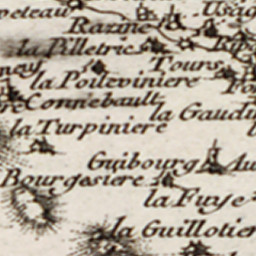 Razine
la Pilletrie
Tours
la Poiteviniere
Connebault
la Gaudi
la Turpiniere
Guibourg
Bourgesiere
la Fuye
la Guillotier